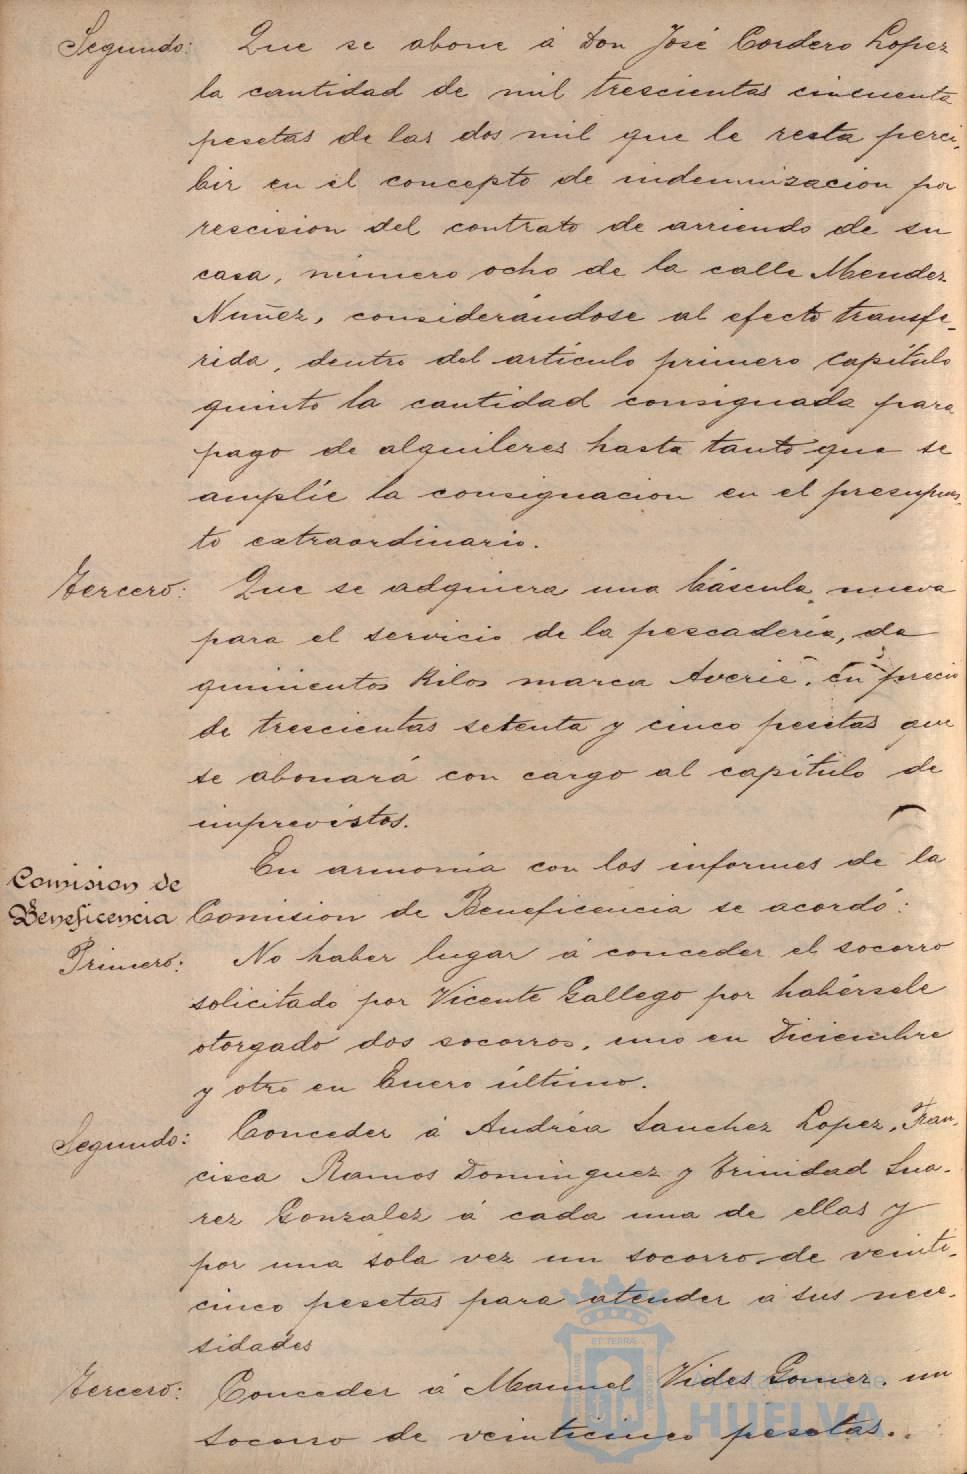 Segundo: Que se abone á Don José Cordero Lopez
la cantidad de mil trescientas cincuenta
pesetas de las dos mil que le resta perci-
bir en el concepto de indemnizacion por
rescision del contrato de arriendo de su
casa, número ocho de la calle Mendez
Nuñez, considerándose al efecto transfe-
rida, dentro del artículo primero capítulo
quinto la cantidad consignada para
pago de alquileres hasta tanto que se
amplíe la consignacion en el presupues-
to extraordinario.
Tercero: Que se adquiera una báscula nueva
para el servicio de la pescadería, de
quinientos Kilos marca Averie, en precio
de trescientas setenta y cinco pesetas que
se abonará con cargo al capítulo de
imprevistos.
En armonía con los informes de la
Comision de
Beneficencia
Comision de Beneficencia se acordó:
Primero: No haber lugar á conceder el socorro
solicitado por Vicente Gallego por habérsele
otorgado dos socorros, uno en Diciembre
y otro en Enero último.
Segundo: Conceder á Andréa Sanchez Lopez, Fran-
cisca Ramos Dominguez y Trinidad Sua-
rez Gonzalez á cada una de ellas y
por una sola vez un socorro de veinti-
cinco pesetas para atender á sus nece-
sidades
Tercero: Conceder á Manuel Vides Gomez, un
socorro de veinticinco pesetas.
Ayuntamiento de
HUELVA